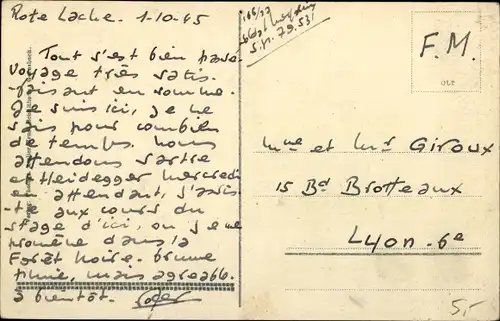 Rote Lache. 1-10-45
Tout s'est bien passé
voyage très satis-
faisant en somme.
Je suis ici, je ne
sais pour combien
de temps. Nous
attendons Sartre
et Heidegger mercredi
en attendant, j'assis-
te aux cours du
stage d'ici, ou je me
promène dans la
Forêt Noire. brume
pluie, mais agréable.
à bientôt. Roger
S.P. 79.531
F.M.
Mme et Mr GIROUX
15 Bd BroTTeaux
Lyon-6e
5,-